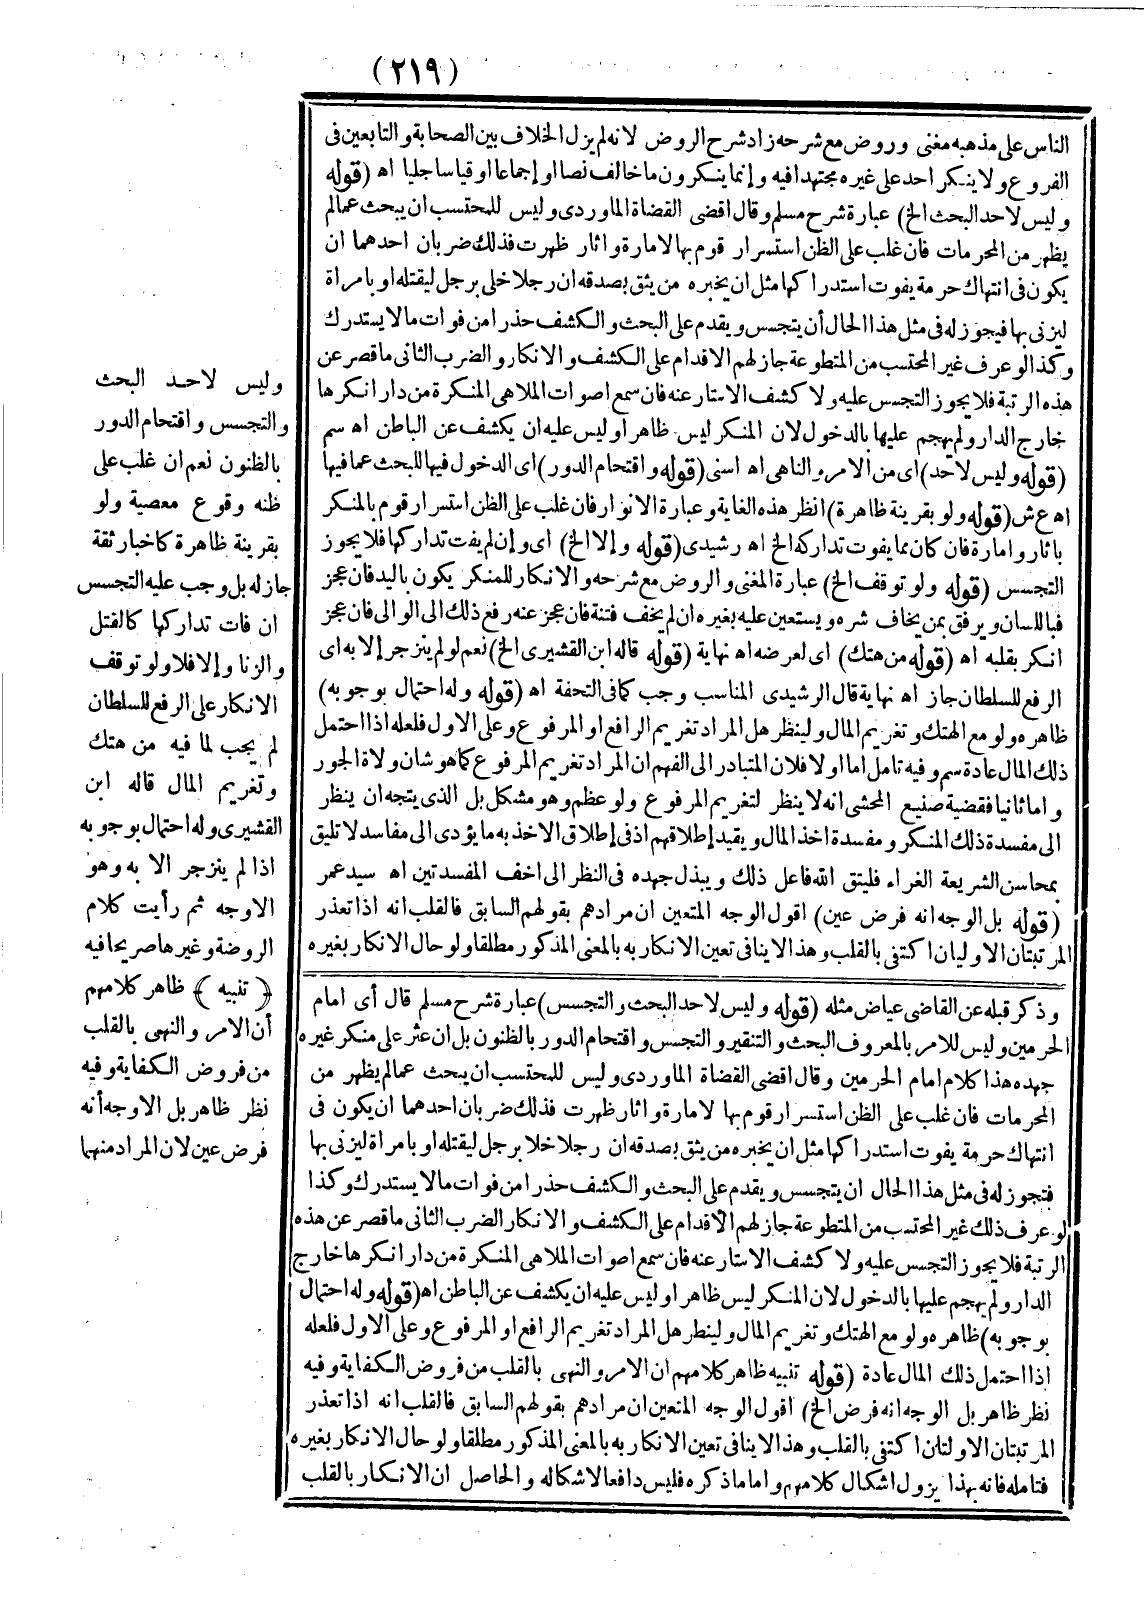 (٢١٩)
الناس على مذهبه مغنى وروض مع شرحه زاد شرح الروض لانه لم يزل الخلاف بين الصحابة والتابعين فى
الفروع ولا ينكر احد على غيره مجتهدا فيه وإنما ينكرون ما خالف نصا او إجماعا او قياسا جليا اه (قوله
وليس لاحد البحث الخ) عبارة شرح مسلم وقال اقضى القضاة الماوردى وليس للمحتسب ان يبحث عما لم
يظهر من المحرمات فان غلب على الظن استسرار قوم بها لامارة واثار ظهرت فذلك ضربان احدهما ان
يكون فى انتهاك حرمة يفوت استدراكها مثل ان يخبره من يثق بصدقه ان رجلا خلى برجل ليقتله او بامراة
ليزنى بها فيجوز له فى مثل هذا الحال أن يتجسس ويقدم على البحث والكشف حذرا من فوات ما لا يستدرك
وكذا لو عرف غير المحتسب من المتطوعة جاز لهم الاقدام على الكشف والانكار والضرب الثانى ما قصر عن
هذه الرتبة فلا يجوز التجسس عليه ولا كشف الاستار عنه فان سمع اصوات الملاهى المنكرة من دار انكرها
خارج الدار ولم يهجم عليها بالدخول لان المنكر ليس ظاهرا وليس عليه ان يكشف عن الباطن اه سم
(قوله وليس لاحد) اى من الامر والناهى اه اسنى (قوله واقتحام الدور) اى الدخول فيها للبحث عما فيها
اه ع ش (قوله ولو بقرينة ظاهرة) انظر هذه الغاية وعبارة الانوار فان غلب على الظن استسرار قوم بالمنكر
باثار وامارة فان كان مما يفوت تداركه الخ اه رشيدى (قوله وإلا الخ) اى وإن لم يفت تداركها فلا يجوز
التجسس (قوله ولو توقف الخ) عبارة المغنى والروض مع شرحه والانكار للمنكر يكون باليد فان عجز
فباللسان ويرفق بمن يخاف شره ويستعين عليه بغيره ان لم يخف فتنة فان عجز عنه رفع ذلك الى الوالى فان عجز
انكر بقلبه اه (قوله من هتك) اى لعرضه اه نهاية (قوله قاله ابن القشيرى الخ) نعم لو لم ينزجر إلا به اى
الرفع للسلطان جاز اه نهاية قال الرشيدى المناسب وجب كما فى التحفة اه (قوله وله احتمال بوجوبه)
ظاهره ولو مع الهتك وتغريم المال ولينظر هل المراد تغريم الرافع او المرفوع وعلى الاول فلعله اذا احتمل
ذلك المال عادة سم وفيه تامل اما اولا فلان المتبادر الى الفهم ان المراد تغريم المرفوع كما هو شان ولاة الجور
واما ثانيا فقضية صنيع المحشى انه لا ينظر لتغريم المرفوع ولو عظم وهو مشكل بل الذى يتجه ان ينظر
الى مفسدة ذلك المنكر ومفسدة اخذ المال ويقيد إطلاقهم اذ فى إطلاق الاخذ به ما يؤدى الى مفاسد لا تليق
بمحاسن الشريعة الغراء فليتق الله فاعل ذلك ويبذل جهده فى النظر الى اخف المفسدتين اه سيد عمر
(قوله بل الوجه انه فرض عين) اقول الوجه المتعين ان مرادهم بقولهم السابق فالقلب انه اذا تعذر
المرتبتان الاوليان اكتفى بالقلب وهذا لا ينافى تعين الانكار به بالمعنى المذكور مطلقا ولو حال الانكار بغيره
وذكر قبله عن القاضى عياض مثله (قوله وليس لاحد البحث والتجسس) عبارة شرح مسلم قال أى امام
الحرمين وليس للامر بالمعروف البحث والتنقير والتجسس واقتحام الدور بالظنون بل ان عثر على منكر غيره
جهده هذا كلام امام الحرمين وقال اقضى القضاة الماوردى وليس للمحتسب ان يبحث عما لم يظهر من
المحرمات فان غلب على الظن استسرار قوم بها لامارة واثار ظهرت فذلك ضربان احدهما ان يكون فى
انتهاك حرمة يفوت استدراكها مثل ان يخبره من يثق بصدقه ان رجلا خلا برجل ليقتله او بامراة ليزنى بها
فتجوز له فى مثل هذا الحال ان يتجسس ويقدم على البحث والكشف حذرا من فوات ما لا يستدرك وكذا
لو عرف ذلك غير المحتسب من المتطوعة جاز لهم الاقدام على الكشف والانكار الضرب الثانى ما قصر عن هذه
الرتبة فلا يجوز التجسس عليه ولا كشف الاستار عنه فان سمع اصوات الملاهى المنكرة من دار انكرها خارج
الدار ولم يهجم عليها بالدخول لان المنكر ليس ظاهرا وليس عليه ان يكشف عن الباطن اه (قوله وله احتمال
بوجوبه) ظاهره ولو مع الهتك وتغريم المال ولينطر هل المراد تغريم الرافع او المرفوع وعلى الاول فلعله
اذا احتمل ذلك المال عادة (قوله تنبيه ظاهر كلامهم ان الامر والنهى بالقلب من فروض الكفاية وفيه
نظر ظاهر بل الوجه انه فرض الخ) اقول الوجه المتعين ان مرادهم بقولهم السابق فالقلب انه اذا تعذر
المرتبتان الاولتان اكتفى بالقلب وهذا لا ينافى تعين الانكار به بالمعنى المذكور مطلقا ولو حال الانكار بغيره
فتامله فانه بهذا يزول اشكال كلامهم واما ما ذكره فليس دافعا لاشكاله والحاصل ان الانكار بالقلب
وليس لاحد البحث
والتجسس واقتحام الدور
بالظنون نعم ان غلب على
ظنه وقوع معصية ولو
بقرينة ظاهرة كاخبار ثقة
جاز له بل وجب عليه التجسس
ان فات تداركها كالقتل
والزنا وإلا فلا ولو توقف
الانكار على الرفع للسلطان
لم يجب لما فيه من هتك
وتغريم المال قاله ابن
القشيرى وله احتمال بوجوبه
اذا لم ينزجر الا به وهو
الاوجه ثم رأيت كلام
الروضة وغيرها صريحا فيه
﴿ تنبيه ﴾ ظاهر كلامهم
أن الامر والنهى بالقلب
من فروض الكفاية وفيه
نظر ظاهر بل الاوجه أنه
فرض عين لان المراد منهما